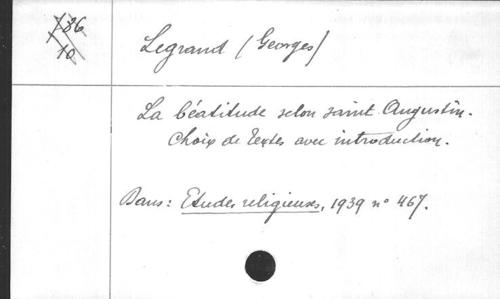 186
10
Legrand (Georges)
La béatitude selon saint Augustin.
Choix de textes avec introduction.
Dans: Etudes religieuses, 1939 n° 467.